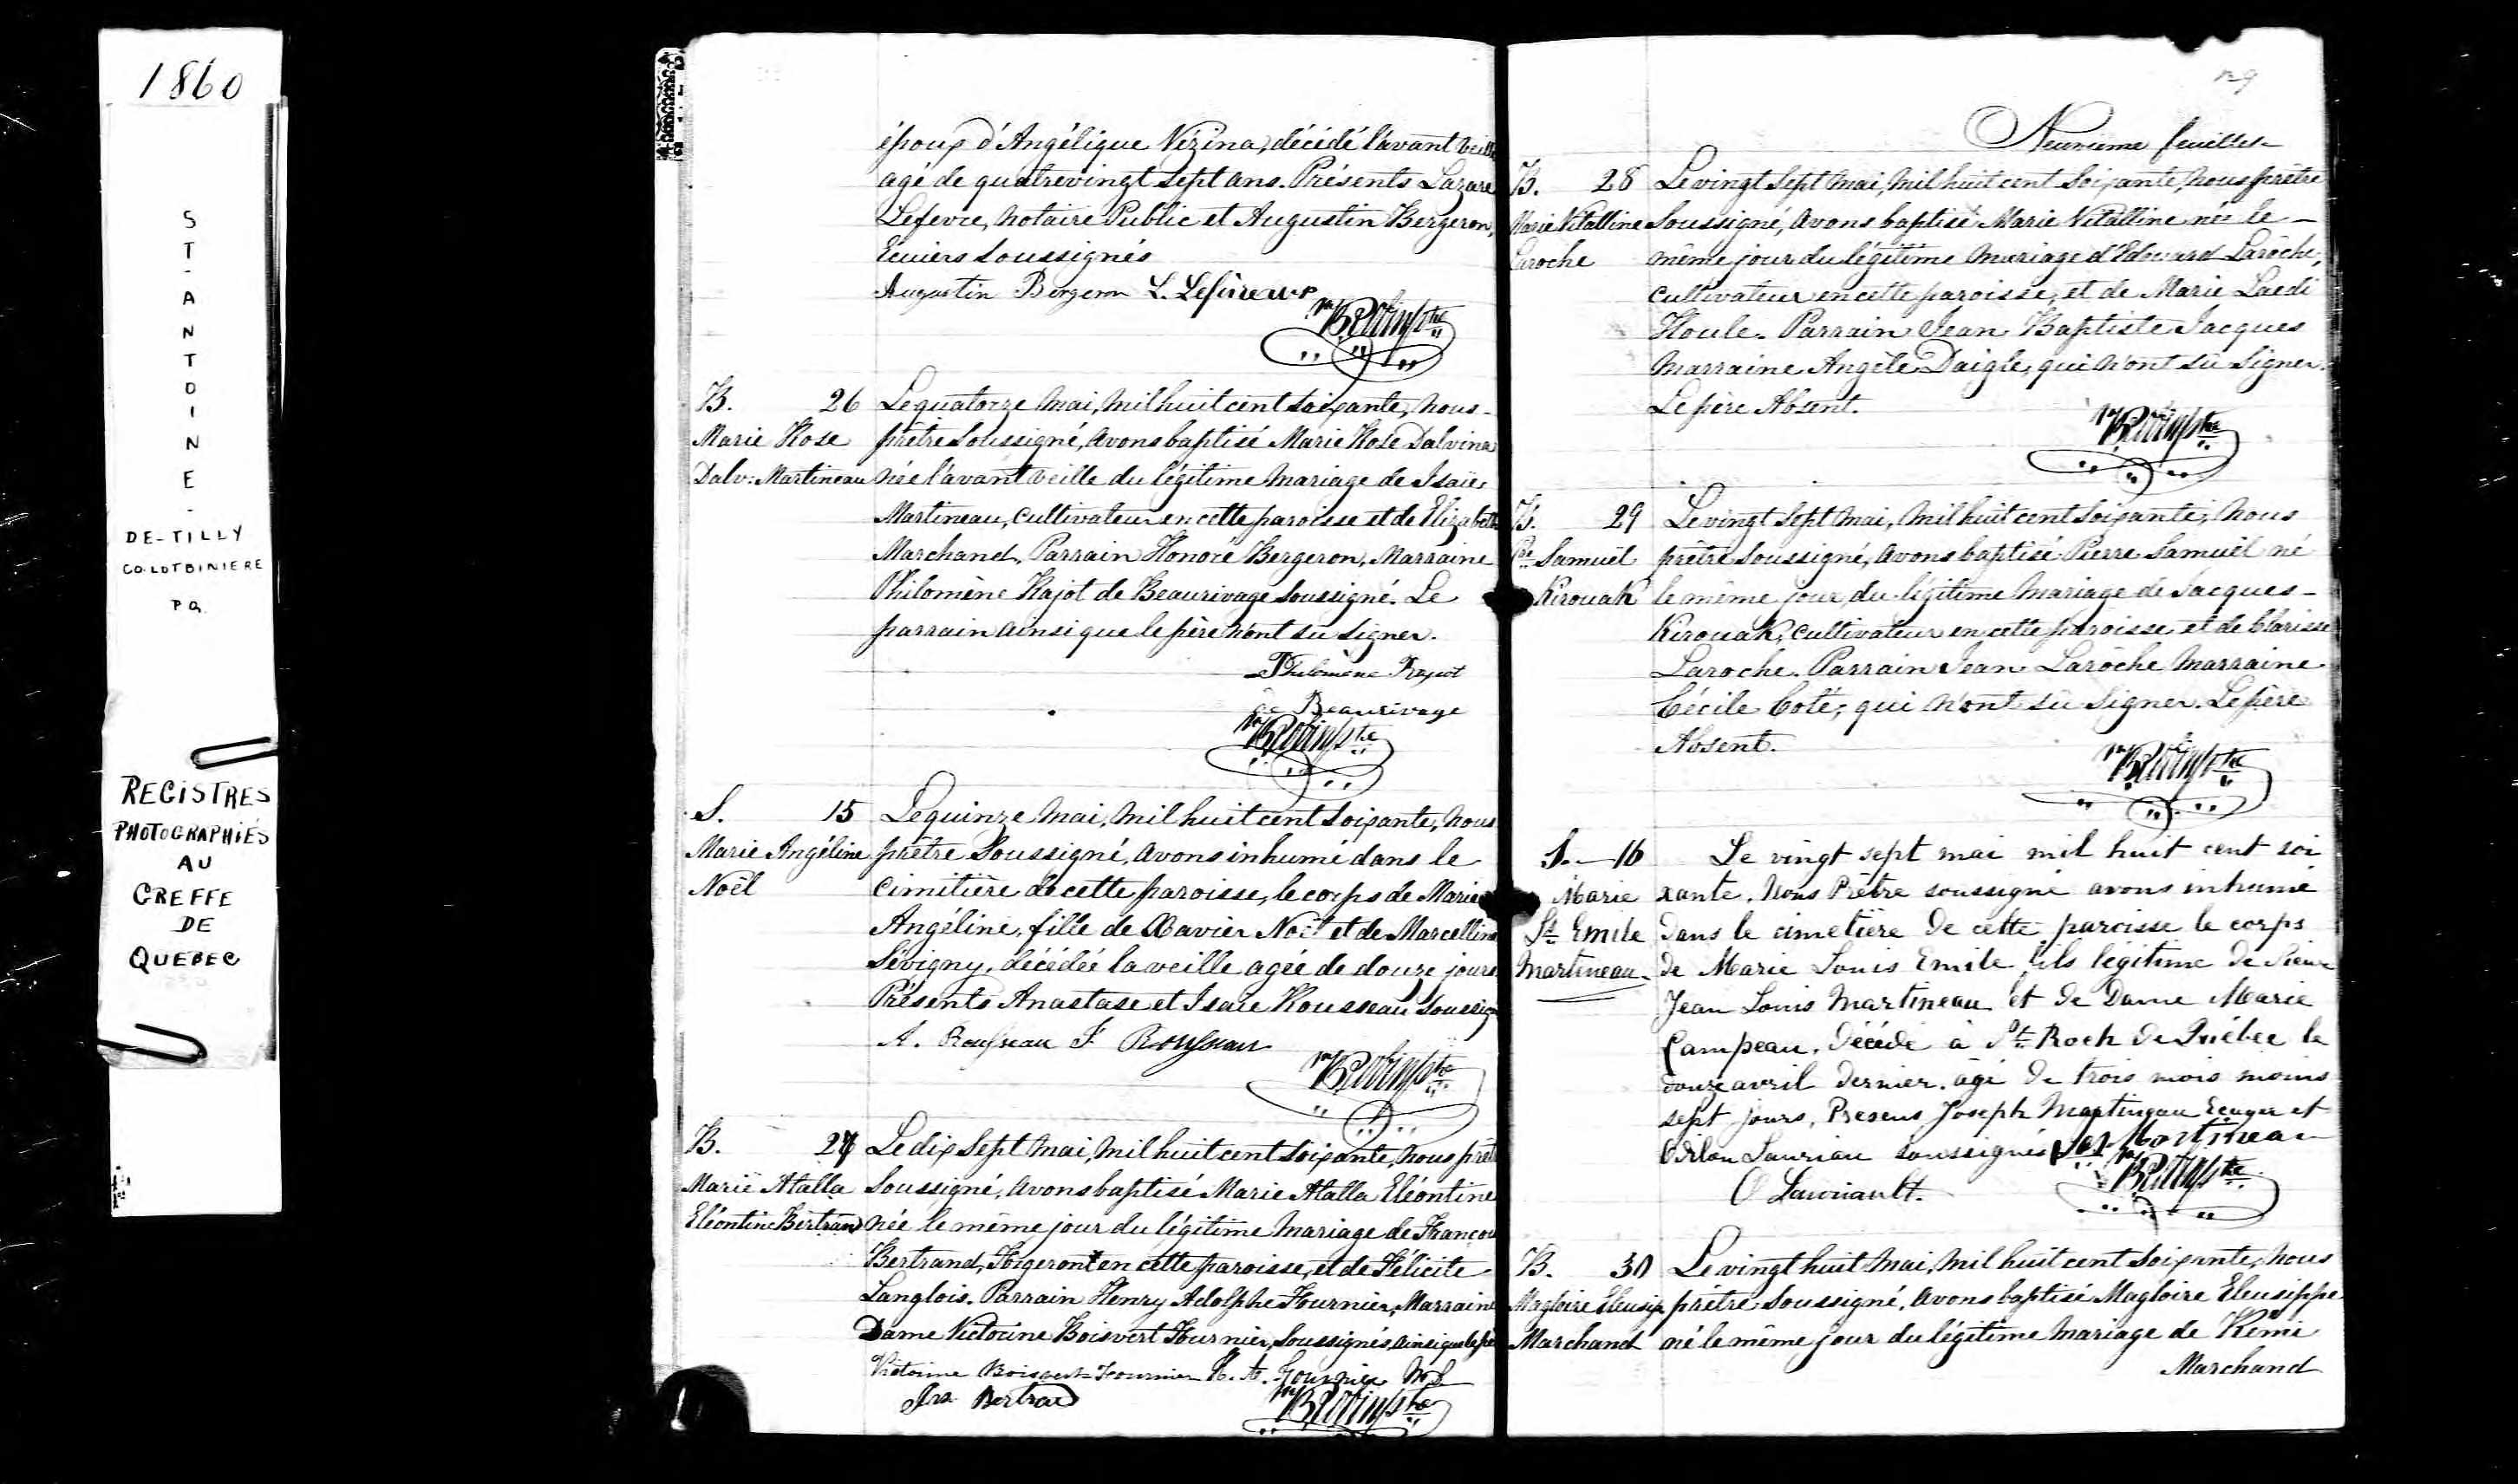 1860
ST-ANTOINE-
DE-TILLY
CO. LOTBINIERE
P Q.
REGISTRES
PHOTOGRAPHIÉS
AU
GREFFE
DE
QUEBEC
époux d'Angélique Vézina, décédé l'avant veille
agé de quatrevingt sept ans. Présents Lazare
Lefevre, Notaire Public et Augustin Bergeron,
Ecuiers soussignés
Augustin Bergeron L. Lefèvre N.P.
B. 26
Marie Rose
Dalv: Martineau
Le quatorze Mai, Mil huit cent soixante, nous
prêtre soussigné, avons baptisé Marie Rose Dalvina
née l'avant veille du légitime mariage de Isaïe
Martineau, Cultivateur en cette paroisse et de Elizabeth
Marchand, Parrain Honoré Bergeron, Marraine
Philomène Rajot de Beaurivage soussigné. Le
parrain ainsi que le père n'ont su signer.
Philomène Rajot
de Beaurivage
S. 15
Marie Angéline
Noël
Le quinze Mai, Mil huit cent soixante, nous
prêtre soussigné, avons inhumé dans le
cimitière de cette paroisse, le corps de Marie
Angéline, fille de Xavier Noël et de Marcelline
Sévigny, décédée la veille agée de douze jours
Présents Anastase et Isaïe Rousseau soussig
A. Rousseau I. Rousseau
B. 27
Marie Atalla
Eléontine Bertrand
Le dix sept Mai, Mil huit cent soixante, nous prêt
soussigné, avons baptisé Marie Atalla Eléontine
née le même jour du légitime mariage de Françou
Bertrand, Forgeron en cette paroisse, et de Félicite
Langlois. Parrain Henry Adolphe Fournier, Marraine
Dame Victorine Boisvert Fournier, soussignés, ainsi que le pè
Victorine Boisvert Fournier H. A. Fournier
Frs Bertrand
Neuvieme feuillet
B. 28
Marie Vitalline
Laroche
Le vingt sept Mai, Mil huit cent soixante, nous prêtre
soussigné, avons baptisé Marie Vitalline née le
même jour du légitime mariage d'Edouard Laroche,
cultivateur en cette paroisse, et de Marie Laedi
Houle. Parrain Jean Baptiste Jacques
marraine Angèle Daigle, qui n'ont su signer.
Le père Absent.
B. 29
Pre Samuël
Kirouak
Le vingt sept Mai, Mil huit cent soixante, nous
prêtre soussigné, avons baptisé Pierre Samuël né
le même jour, du légitime mariage de Jacques
Kirouak, cultivateur en cette paroisse et de Clarisse
Laroche. Parrain Jean Laroche Marraine
Cécile Coté, qui n'ont su signer. Le père
Absent.
S. 16
Marie
Ls Emile
Martineau
Le vingt sept mai mil huit cent soi
xante, Nous Prêtre soussigné avons inhumé
dans le cimetière de cette paroisse le corps
de Marie Louis Emile, fils légitime de Sieur
Jean Louis Martineau et de Dame Marie
Campeau, décédé à St Roch de Québec le
douze avril dernier, âgé de trois mois moins
sept jours, Presens Joseph Martineau Ecuyer et
Odilon Lauriau soussignés Jos Martineau
O Lauriault
B. 30
Magloire Eleusip
Marchand
Le vingt huit Mai, Mil huit cent soixante, nous
prêtre soussigné, avons baptisé Magloire Eleusippe
né le même jour du légitime mariage de Rémi
Marchand